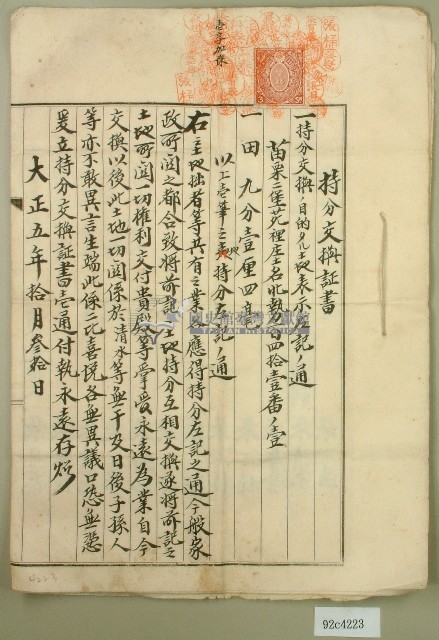 壱字加除
持分交換証書
一持分交換ノ目的タル土地表示左記ノ通
苗栗二堡苑裡庄土名北勢百四拾壹番ノ壹
一田九分壹厘四毫
以上壱筆之地持分左記ノ通
右土地拙者等共有之業應得持分左記之通今般家
政所関之都合致將前記土地持分互相交換遂將前記之
土地所関一切權利交付貴殿等掌受永遠為業自今
交換以後此土地一切関係於清水等無干及日後子孫人
等亦不敢異言生端此係二比喜悦各無異議口恐無憑
爰立持分交換証書壱通付執永遠存炤
大正五年拾月叁拾日
4223
92c4223